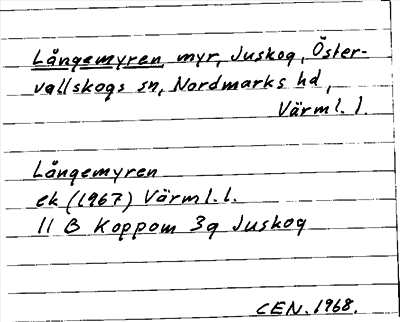 Långemyren, myr, Juskog, Öster-
vallskogs sn, Nordmarks hd,
Värml. l.
Långemyren
ek (1967) Värml. l.
11 B Koppom 3g Juskog
CEN. 1968.